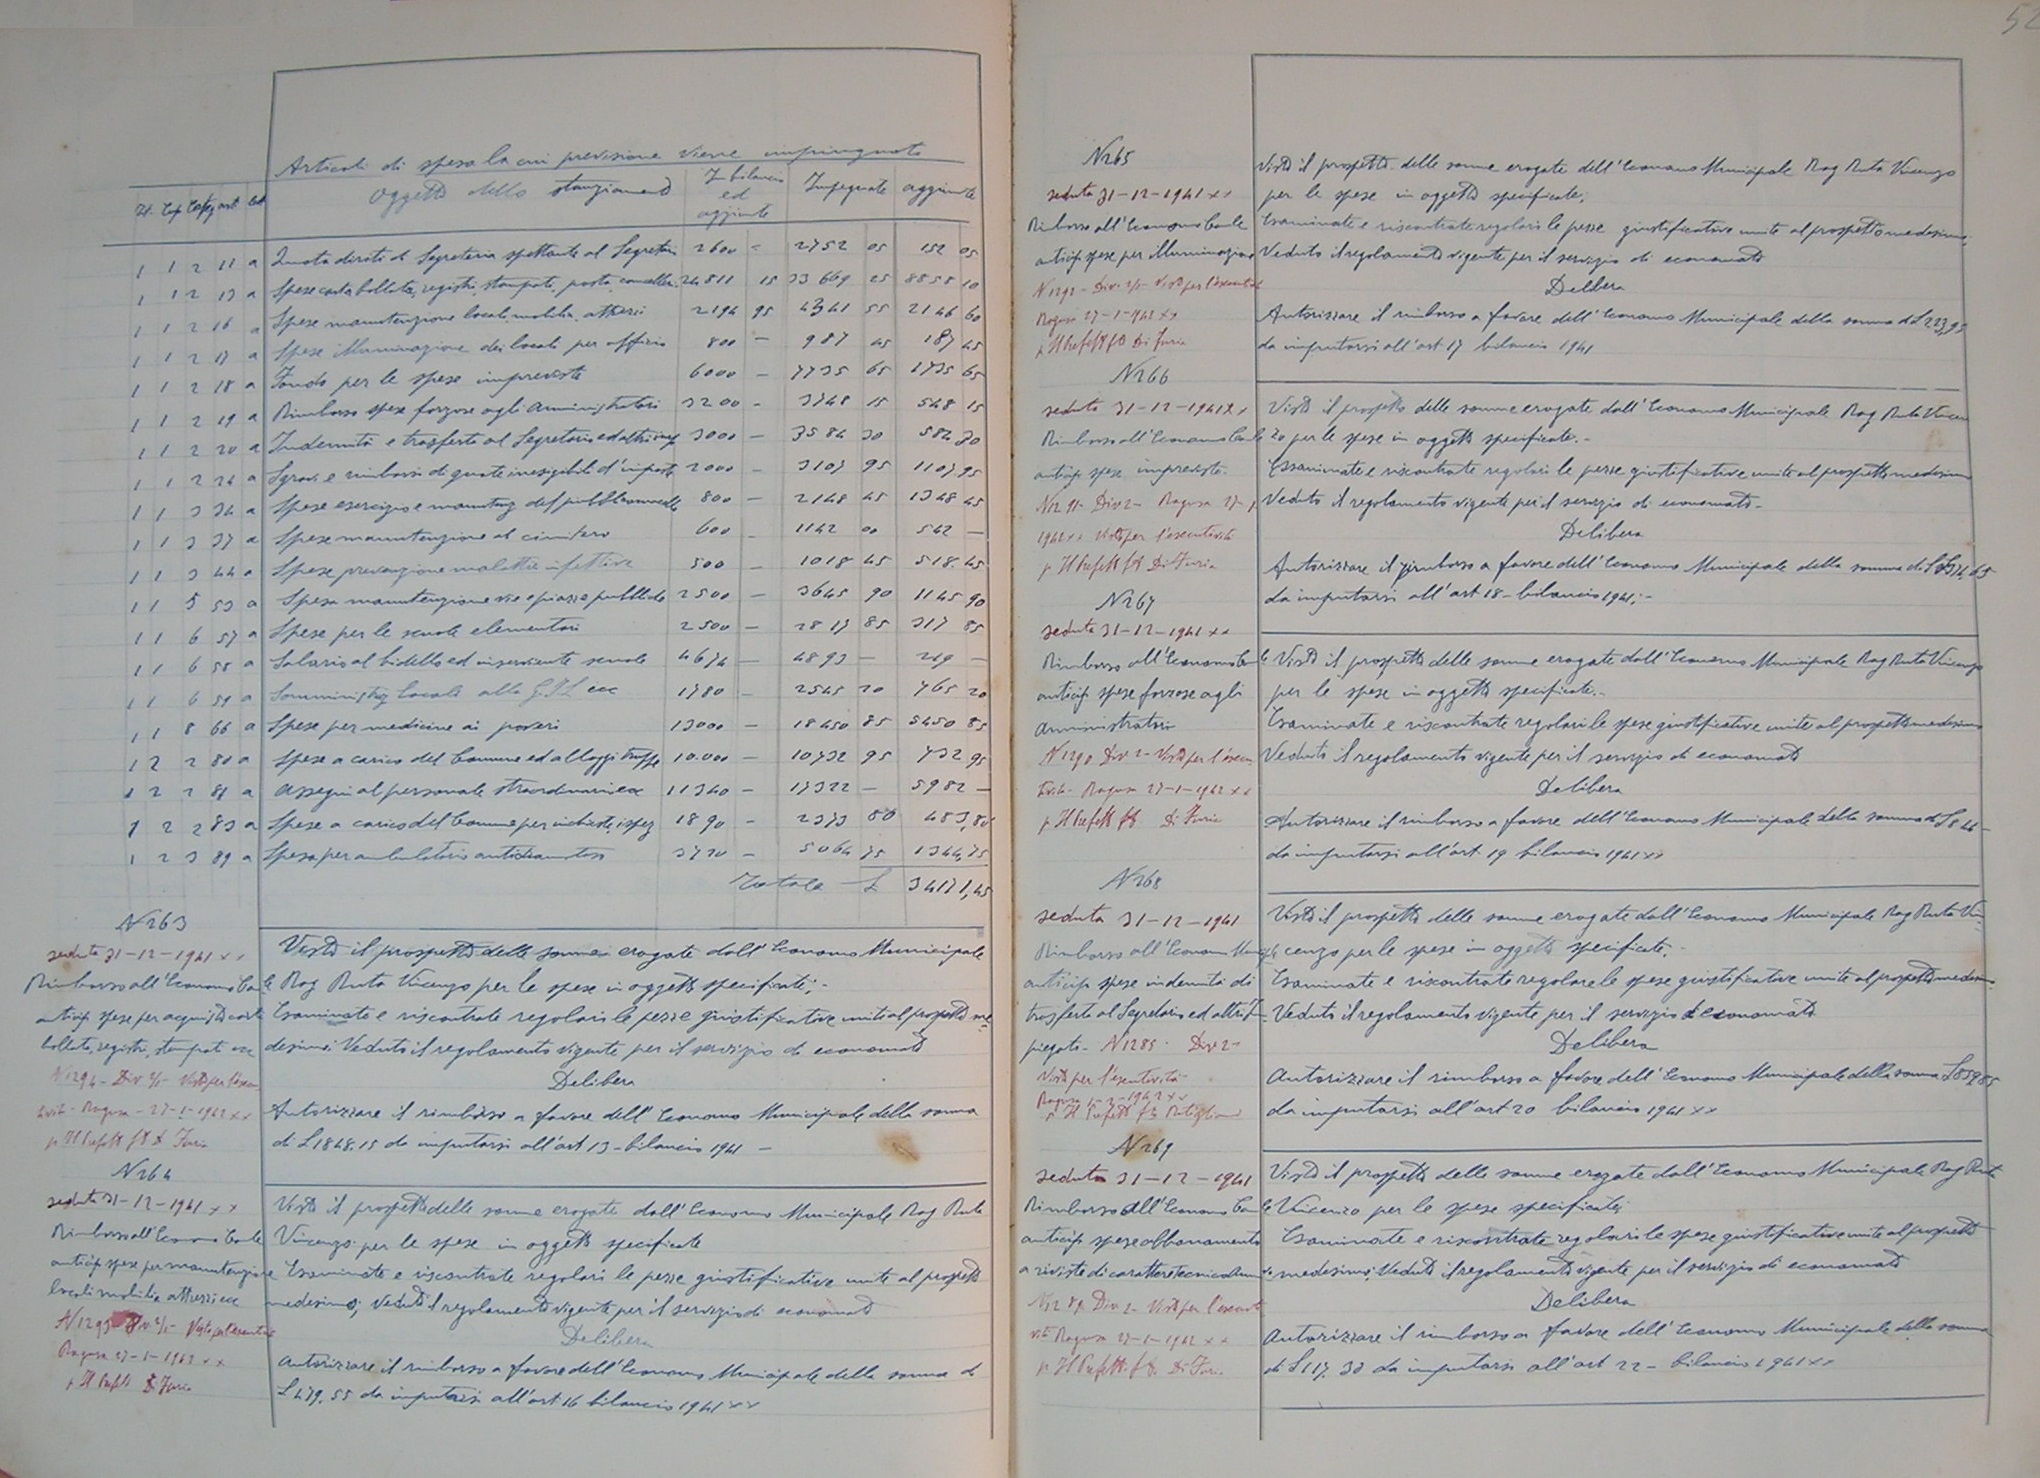 52
Articoli di spesa la cui previsione viene impinguata
Tit. Cap Categ art let Oggetto dello stanziamento In bilancio ed aggiunte Impegnate aggiunte
1 1 2 11 a Quota diritti di Segreteria spettante al Segretario 2600 - 2752 05 152 05
1 1 2 13 a Spese carta bollata, registri, stampati, posta, cancelleria 24811 15 33669 25 8858 10
1 1 2 16 a Spese manutenzione locali, mobilia, attrezzi 2194 95 4341 55 2146 60
1 1 2 17 a Spese illuminazione dei locali per ufficio 800 - 987 45 187 45
1 1 2 18 a Fondo per le spese impreviste 6000 - 7735 65 1735 65
1 1 2 19 a Rimborso spese forzose agli Amministratori 3200 - 3748 15 548 15
1 1 2 20 a Indennità e trasferte al Segretario ed altri imp 3000 - 3584 30 584 30
1 1 2 24 a Sgravi e rimborsi di quote inesigibili d'imposte 2000 - 3107 95 1107 95
1 1 3 34 a Spese esercizio e manutenz del pubblico 800 - 2148 45 1348 45
1 1 3 37 a Spese manutenzione al cimitero 600 1142 00 542 -
1 1 3 44 a Spese prevenzione malattie infettive 500 - 1018 45 518.45
1 1 5 53 a Spesa manutenzione vie e piazze pubbliche 2500 - 3645 90 1145 90
1 1 6 57 a Spese per le scuole elementari 2500 - 2817 85 317 85
1 1 6 58 a Salario al bidello ed inserviente scuole 4674 - 4893 - 219 -
1 1 6 59 a Somministraz locali alla G.I.L ecc 1780 - 2545 20 765 20
1 1 8 66 a Spese per medicine ai poveri 13000 - 18450 85 5450 85
1 2 2 80 a Spese a carico del Comune ed alloggi truppe 10.000 - 10732 95 732 95
1 2 2 81 a Assegni al personale straordinario ecc 11340 - 17322 - 5982 -
1 2 2 83 a Spese a carico del Comune per inchieste, ispez 1890 - 2373 80 483,80
1 2 3 89 a Spesa per ambulatorio antitracomatoso 3720 - 5064 75 1344,75
Totale £ 34171,45
N 263
seduta 31-12-1941 XX
Rimborso all'Economo Com/le
anticip spese per acquisto carta
bollata, registri, stampati ecc
N 1294 - Div. 2/1 - Visto per l'esecu
tività - Ragusa - 27-1-1942 XX
p. Il Prefetto f/to Di Furia
Visto il prospetto delle somme erogate dall'Economo Municipale
Rag Ruta Vincenzo per le spese in oggetto specificate; -
Esaminate e riscontrate regolari le pezze giustificative unite al prospetto me-
desimo; Veduto il regolamento vigente per il servizio di economato
Delibera
Autorizzare il rimborso a favore dell'Economo Municipale della somma
di L 1848.15 da imputarsi all'art 13 - bilancio 1941 -
N 264
seduta 31-12-1941 XX
Rimborso all'Economo Com/le
anticip spese per manutenzione
locali mobilia attrezzi ecc
N 1293 Div. 2/1 - Visto per l'esecutività
Ragusa 27-1-1942 XX
p. Il Prefetto Di Furia
Visto il prospetto delle somme erogate dall'Economo Municipale Rag Ruta
Vincenzo per le spese in oggetto specificate
Esaminate e riscontrate regolari le pezze giustificative unite al prospetto
medesimo; Veduto il regolamento vigente per il servizio di economato
Delibera
Autorizzare il rimborso a favore dell'Economo Municipale della somma di
L 479.55 da imputarsi all'art 16 bilancio 1941 XX
N 265
seduta 31-12-1941 XX
Rimborso all'Economo Com/le
anticip spese per illuminazione
N 1292 - Div. 2/1 - Visto per l'esecutività
Ragusa 27-1-1942 XX
p Il Prefetto f/to Di Furia
Visto il prospetto delle somme erogate dell'Economo Municipale Rag Ruta Vincenzo
per le spese in oggetto specificate;
Esaminate e riscontrate regolari le pezze giustificative unite al prospetto medesimo;
Veduto il regolamento vigente per il servizio di economato
Delibera
Autorizzare il rimborso a favore dell'Economo Municipale della somma di L 223,95
da imputarsi all'art 17 bilancio 1941
N 266
seduta 31-12-1941 XX
Rimborso all'Economo Com/le
anticip spese impreviste.
N 1291 - Div 2 - Ragusa 27-1-
1942 XX Visto per l'esecutività
p Il Prefetto f/to Di Furia
Visto il prospetto delle somme erogate dall'Economo Municipale Rag Ruta Vincen
zo per le spese in oggetto specificate. -
Esaminate e riscontrate regolari le pezze giustificative unite al prospetto medesimo
Veduto il regolamento vigente per il servizio di economato -
Delibera
Autorizzare il rimborso a favore dell'Economo Municipale della somma di L
da imputarsi all'art 18 - bilancio 1941; -
N 267
seduta 31-12-1941 XX
Rimborso all'Economo Com/le
anticip spese forzose agli
Amministratori
N 1290 Div 2 - Visto per l'esecu
tività - Ragusa 27-1-1942 XX
p Il Prefetto f/to Di Furia
Visto il prospetto delle somme erogate dall'Economo Municipale Rag Ruta Vincenzo
per le spese in oggetto specificate. -
Esaminate e riscontrate regolari le spese giustificative unite al prospetto medesimo
Veduto il regolamento vigente per il servizio di economato
Delibera
Autorizzare il rimborso a favore dell'Economo Municipale della somma di L
da imputarsi all'art 19 bilancio 1941 XX
N 268
seduta 31-12-1941
Rimborso all'Economo Municip
anticip spese indennità di
trasferte al Segretario ed altri im-
piegato - N 1285 - Div 2 -
Visto per l'esecutività
Ragusa 1-2-1942 XX
p. Il Prefetto f/to
Visto il prospetto delle somme erogate dall'Economo Municipale Rag Ruta Vin-
cenzo per le spese in oggetto specificate. -
Esaminate e riscontrate regolare le spese giustificative unite al prospetto medesimo.
Veduto il regolamento vigente per il servizio di economato
Delibera
Autorizzare il rimborso a favore dell'Economo Municipale della somma
da imputarsi all'art 20 bilancio 1941 XX
N 269
seduta 31-12-1941
Rimborso all'Economo Com/le
anticip spese abbonamento
a riviste di carattere tecnico
Div. 2 - Visto per l'esecuti
vità Ragusa 27-1-1942 XX
p. Il Prefetto f/to Di Furia
Visto il prospetto delle somme erogate dall'Economo Municipale Rag Ruta
Vincenzo per le spese specificate;
Esaminate e riscontrate regolari le spese giustificative unite al prospetto
medesimo; Veduto il regolamento vigente per il servizio di economato
Delibera
Autorizzare il rimborso a favore dell'Economo Municipale della somma
di L 117.30 da imputarsi all'art 22 - bilancio 1941 XX